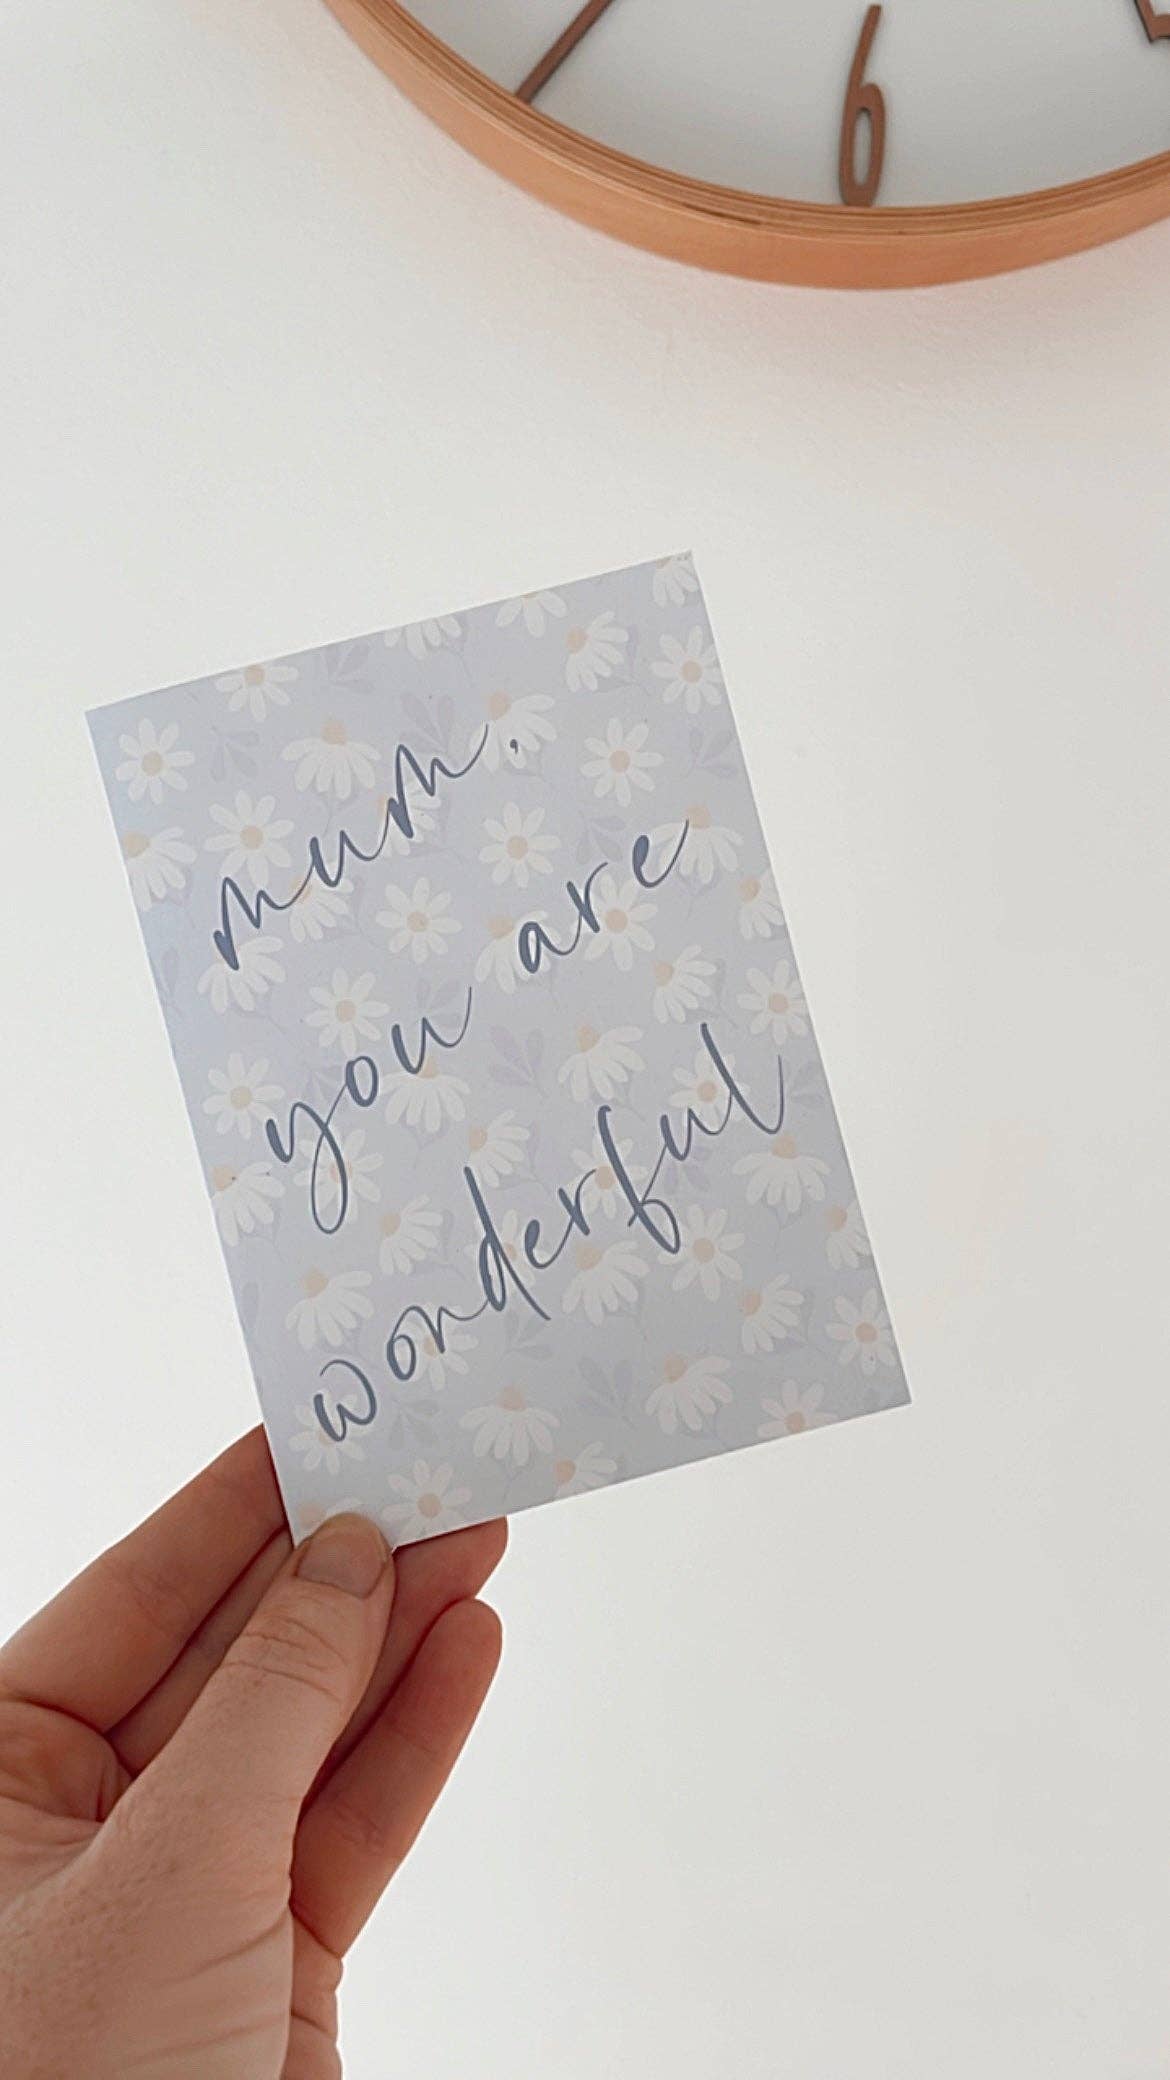 6
mum,
you are
wonderful